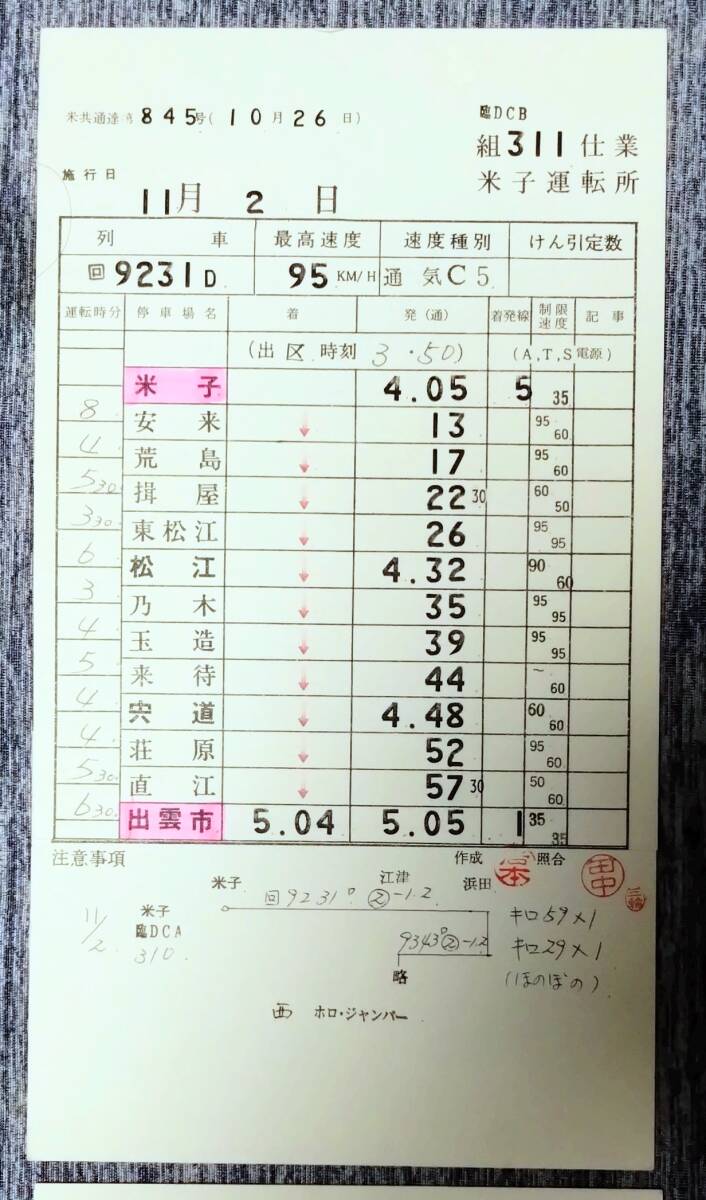 米共通達第845号(10月26日)
臨DCB
組311仕業
米子運転所
施行日
11月 2 日
列 車 最高速度 速度種別 けん引定数
回9231D 95KM/H 通 気C5
運転時分 停車場名 着 発(通) 着発線 制限速度 記事
(出区時刻 3.50) (A,T,S電源)
米 子 4.05 5 35
8
安 来 ↓ 13 95 60
4
荒 島 ↓ 17 95 60
5 30
揖 屋 ↓ 22 30 60 50
3 30.
東松江 ↓ 26 95 95
6
松 江 ↓ 4.32 90 60
3
乃 木 ↓ 35 95 95
4
玉 造 ↓ 39 95 95
5
来 待 ↓ 44 〜 60
4
宍 道 ↓ 4.48 60 60
4
荘 原 ↓ 52 95 60
5 30.
直 江 ↓ 57 30 50 60
6 30.
出雲市 5.04 5.05 1 35 35
注意事項 作成 照合 田中
米子 江津 浜田 三輪
11/2 米子 臨DCA 310 回9231D ②-1.2 キロ59×1
9343D②-1.2 キロ29×1
略 (ほのぼの)
西 ホロ・ジャンパー